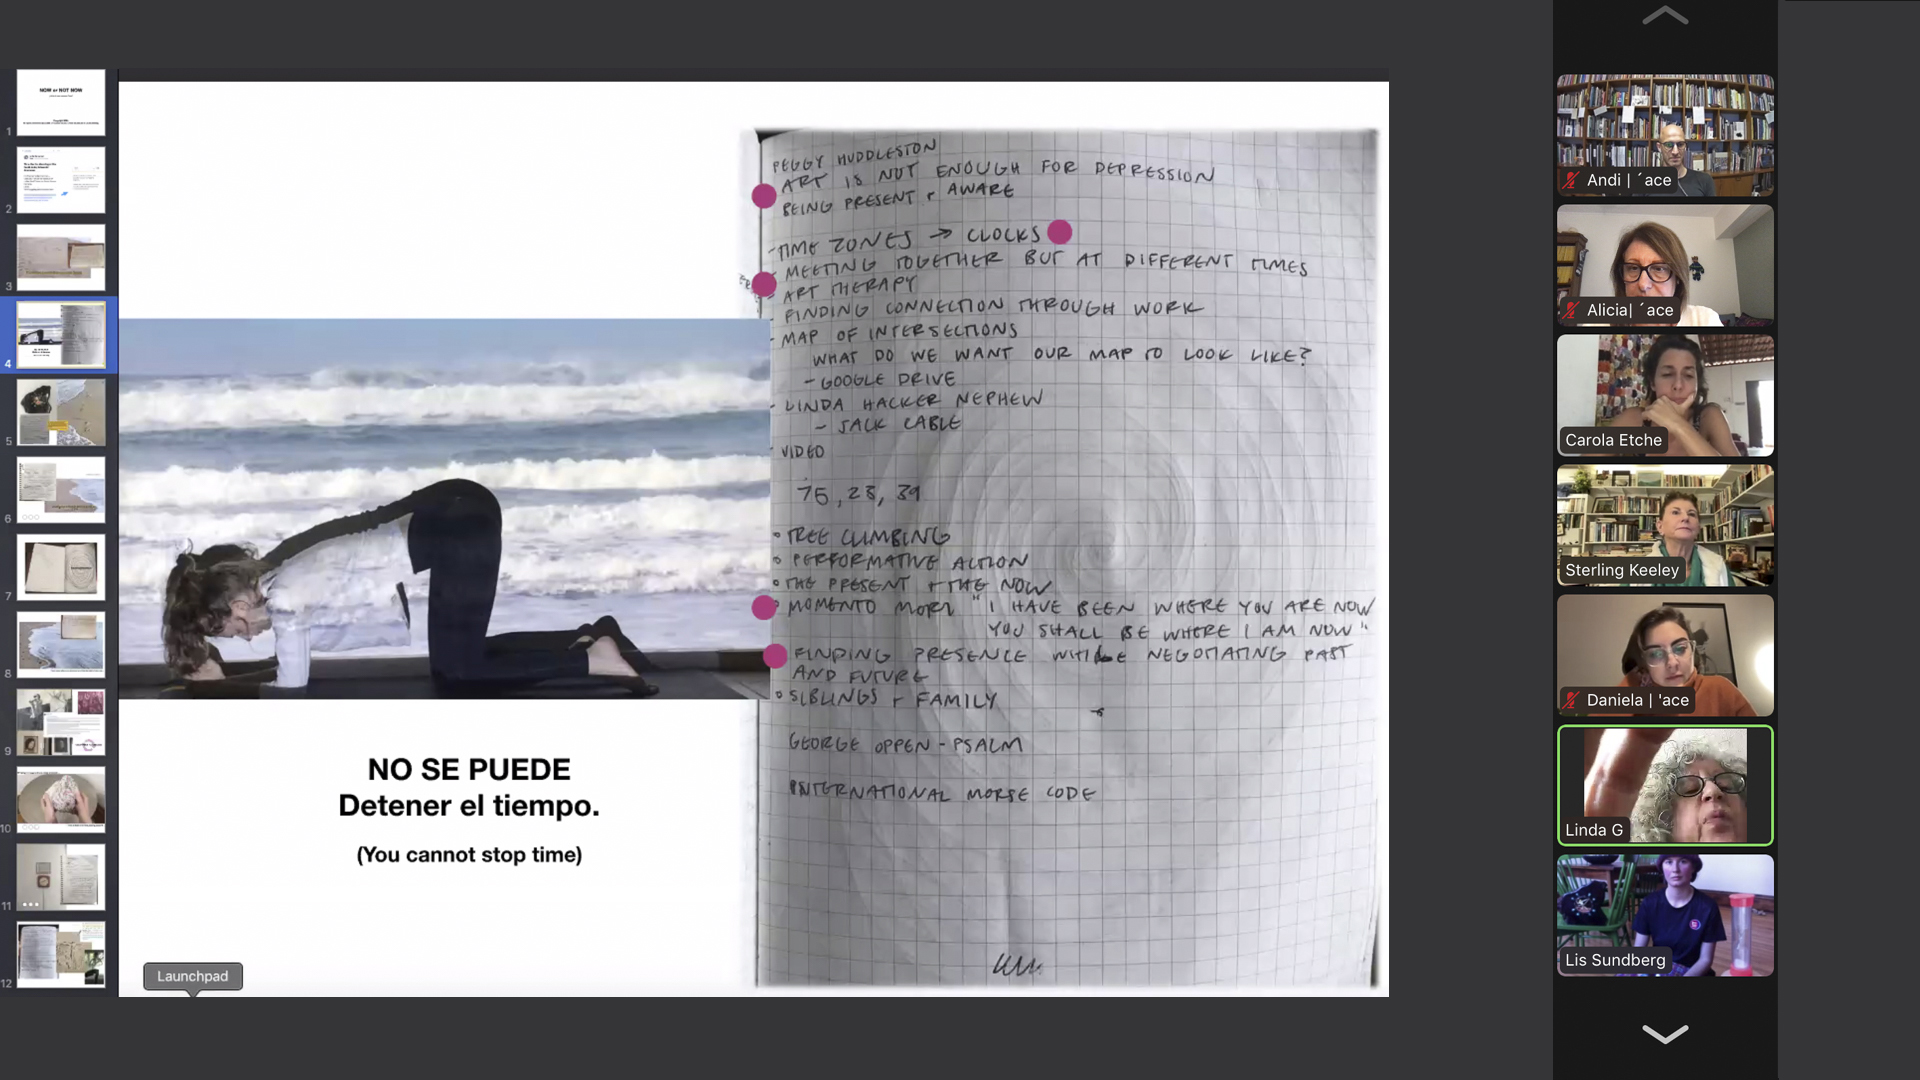 NOW or NOT NOW
1
2
3
4
5
6
7
8
9
10
11
12
NO SE PUEDE
Detener el tiempo.
(You cannot stop time)
Launchpad
PEGGY HUDDLESTON
ART IS NOT ENOUGH FOR DEPRESSION
BEING PRESENT + AWARE
-TIME ZONES → CLOCKS
- MEETING TOGETHER BUT AT DIFFERENT TIMES
- ART THERAPY
- FINDING CONNECTION THROUGH WORK
- MAP OF INTERSECTIONS
WHAT DO WE WANT OUR MAP TO LOOK LIKE?
- GOOGLE DRIVE
- LINDA HACKER NEPHEW
- JACK CABLE
- VIDEO
75, 23, 39
• TREE CLIMBING
• PERFORMATIVE ACTION
• THE PRESENT + THE NOW
• MOMENTO MORI "I HAVE BEEN WHERE YOU ARE NOW
YOU SHALL BE WHERE I AM NOW"
FINDING PRESENCE WHILE NEGOTIATING PAST
AND FUTURE
• SIBLINGS + FAMILY
GEORGE OPPEN - PSALM
INTERNATIONAL MORSE CODE
Andi | ´ace
Alicia| ´ace
Carola Etche
Sterling Keeley
Daniela | 'ace
Linda G
Lis Sundberg